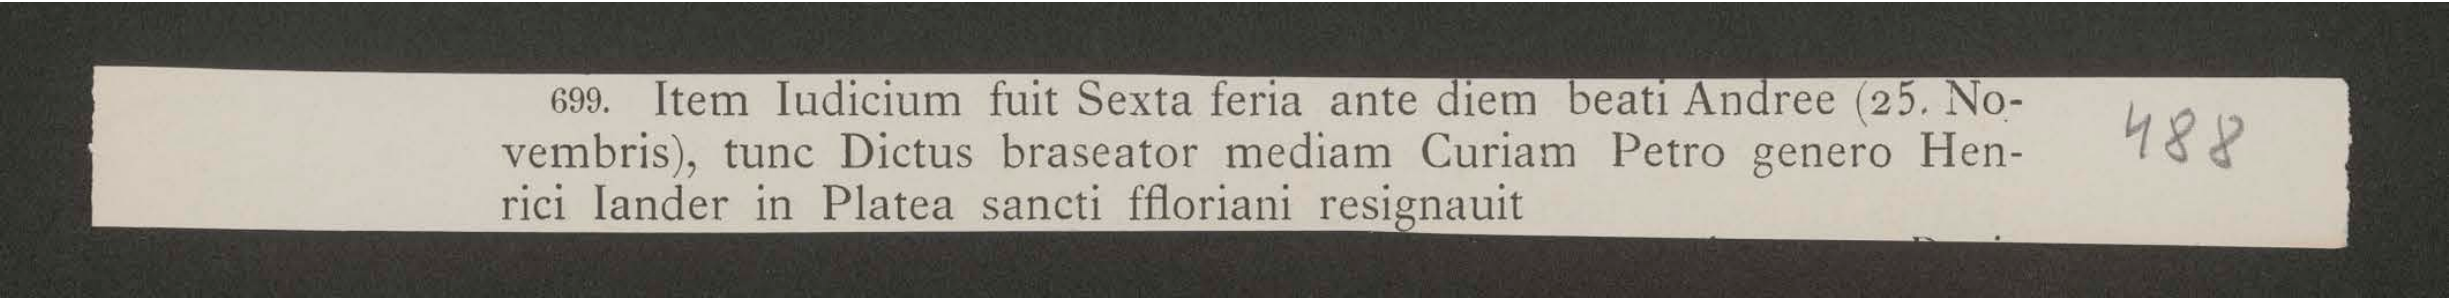 699. Item Iudicium fuit Sexta feria ante diem beati Andree (25. No-
vembris), tunc Dictus braseator mediam Curiam Petro genero Hen-
rici Iander in Platea sancti ffloriani resignauit
488